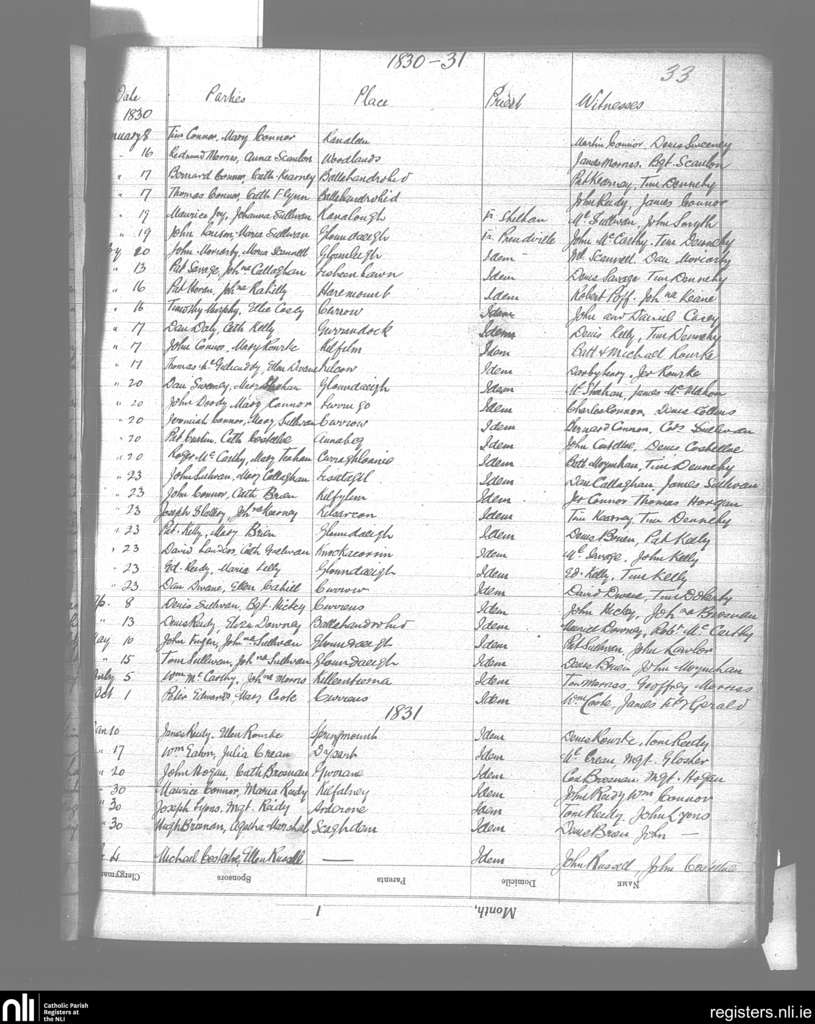 1830-31
33
Date Parties Place Priest Witnesses
1830
nuary 8 Tim Connor, Mary Connor Martin Connor, Denis Sweeney
" 16 Redmond Morris, Anna Scanlon Woodlands James Morris, Bgt. Scanlon
" 17 Bernard Connor, Cath Kearney Ballahandrohid Pat Kearney, Tim Dennehy
" 17 Thomas Connor, Cath Flynn Ballahandrohid John Reidy, James Connor
" 17 Maurice Joy, Johanna Sullivan Kanalough Fr. Sheehan Ml. Sullivan, John Smyth
" 19 John Maria Sullivan Gloundaeigh Fr. Prendiville John McCarthy, Tim Dennehy
20 John Moriarty, Maria Scannell Idem Scannell, Dan Moriarty
" 13 Pat Savage, Johna Callaghan Idem Denis Savage Tim Dennehy
" 16 Pat Horan, Johna Rahilly Haremount Idem Robert Johna Leane
" 16 Timothy Murphy, Ellen Casey Currow Idem John and Daniel Casey
" 17 Dan Daly, Cath Kelly Gurrandock Idem Denis Kelly, Tim Dennehy
" 17 John Connor, Mary Rourke Kilfelm Idem Batt & Michael Rourke
" 17 Thomas Ellen Dwane Kilcow Idem Darby Jer Rourke
" 20 Dan Sweeney, Gloundaeigh Idem James McMahon
" 20 John Doody, Mary Connor Idem Charles Connor, Denis Collins
" 20 Jeremiah Connor, Mary Sullivan Currow Idem Bernard Connor, Cors Sullivan
" 20 Pat Cath Costelloe Annabeg Idem John Costelloe, Denis Costelloe
" 20 Roger McCarthy, Mary Idem Batt Moynihan, Tim Dennehy
" 23 John Sullivan, Mary Callaghan Idem Dan Callaghan, James Sullivan
" 23 John Connor, Cath Brien Kilfylim Idem Jer Connor Thomas Horgan
" 23 Joseph Slattery, Johna Kearney Kilsarcon Idem Tim Kearney, Tim Dennehy
" 23 Pat. Kelly, Mary Brien Gloundaeigh Idem Denis Brien, Pat Kelly
" 23 David Cath Sullivan Idem Ml. Savage, John Kelly
" 23 Ed. Reidy, Maria Kelly Gloundaeigh Idem Ed. Kelly, Tim Kelly
" 23 Dan Dwane, Ellen Cahill Currow Idem David Dwane, Tim Doherty
8 Denis Sullivan, Bgt. Hickey Currens Idem John Hickey, Johna Brosnan
" 13 Denis Reidy, Eliza Downey Ballahandrohid Idem Maurice Downey, Robt. McCarthy
ay 10 John Johna Sullivan Gloundaeigh Idem Pat Sullivan, John Lawlor
" 15 Tom Sullivan, Johna Sullivan Gloundaeigh Idem Denis Brien John Moynihan
uly 5 Wm. McCarthy, Johna Morris Killeentierna Idem Tim Morris, Geoffrey Morris
Oct 1 Peter Edwards, Mary Cooke Currens Idem Wm Cooke, James FitzGerald
1831
Jan 10 James Reidy, Ellen Rourke Spring mount Idem Denis Rourke, Tom Reidy
" 17 Wm Eahn, Julia Crean Dysert Idem Ml. Crean Mgt. Glosher
" 20 John Hogan, Cath Brosnan Idem Con Brosnan Mgt. Hogan
" 30 Maurice Connor, Maria Reidy Kilfalney Idem John Reidy Wm Connor
" 30 Joseph Lyons, Mgt. Reidy Ardcrone Idem Tom Reidy, John Lyons
" 30 Hugh Brosnan, Agatha Marshal Scaghdan Idem Denis Brien John —
4 Michael Costelloe, Ellen Russell — Idem John Russell, John Costelloe
Clergyman Sponsors Parents Domicile NAME
Month, 1
NLI
Catholic Parish
Registers at
the NLI
registers.nli.ie